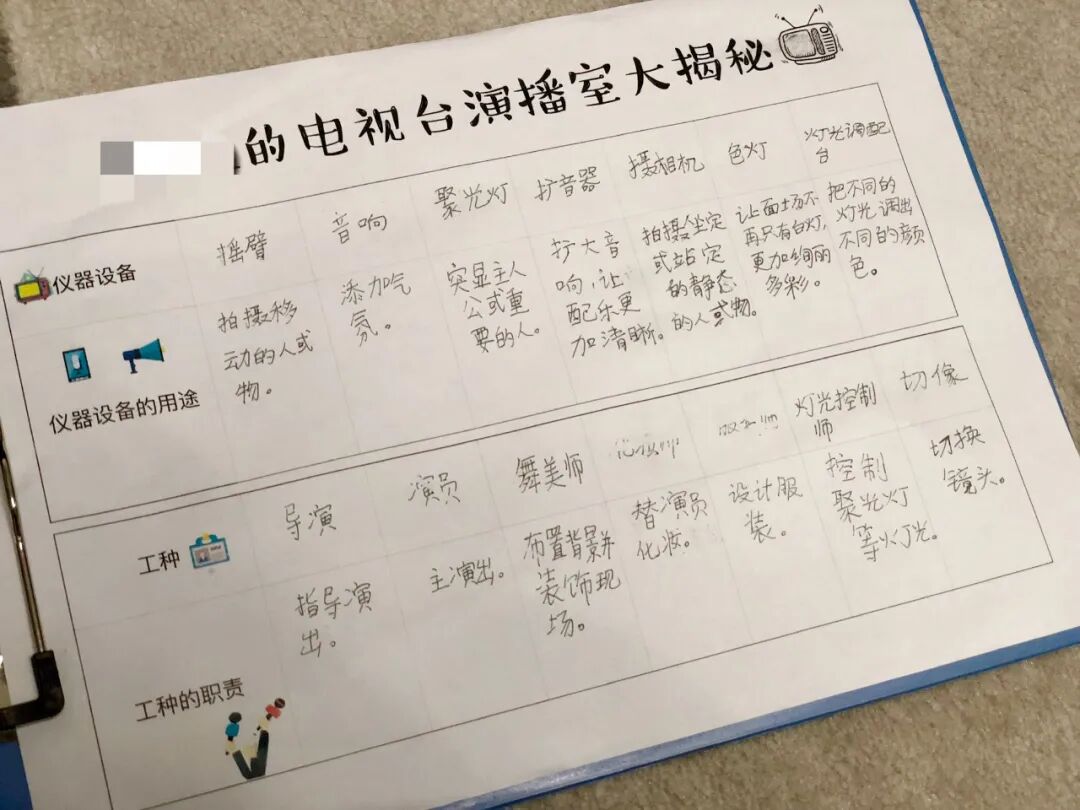 的电视台演播室大揭秘
仪器设备
摇臂
音响
聚光灯
扩音器
摄相机
色灯
灯光调配
台
仪器设备的用途
拍摄移
动的人或
物。
添加气
氛。
突显主人
公或重
要的人。
扩大音
响，让
配乐更
加清晰。
拍摄坐定
或站定
的静态
的人或物。
让面场不
再只有白灯，
更加绚丽
多彩。
把不同的
灯光调出
不同的颜
色。
工种
导演
演员
舞美师
灯光控制
师
切像
工种的职责
指导演
出。
主演出。
布置背景并
装饰现
场。
替演员
化妆。
设计服
装。
控制
聚光灯
等灯光。
切换
镜头。